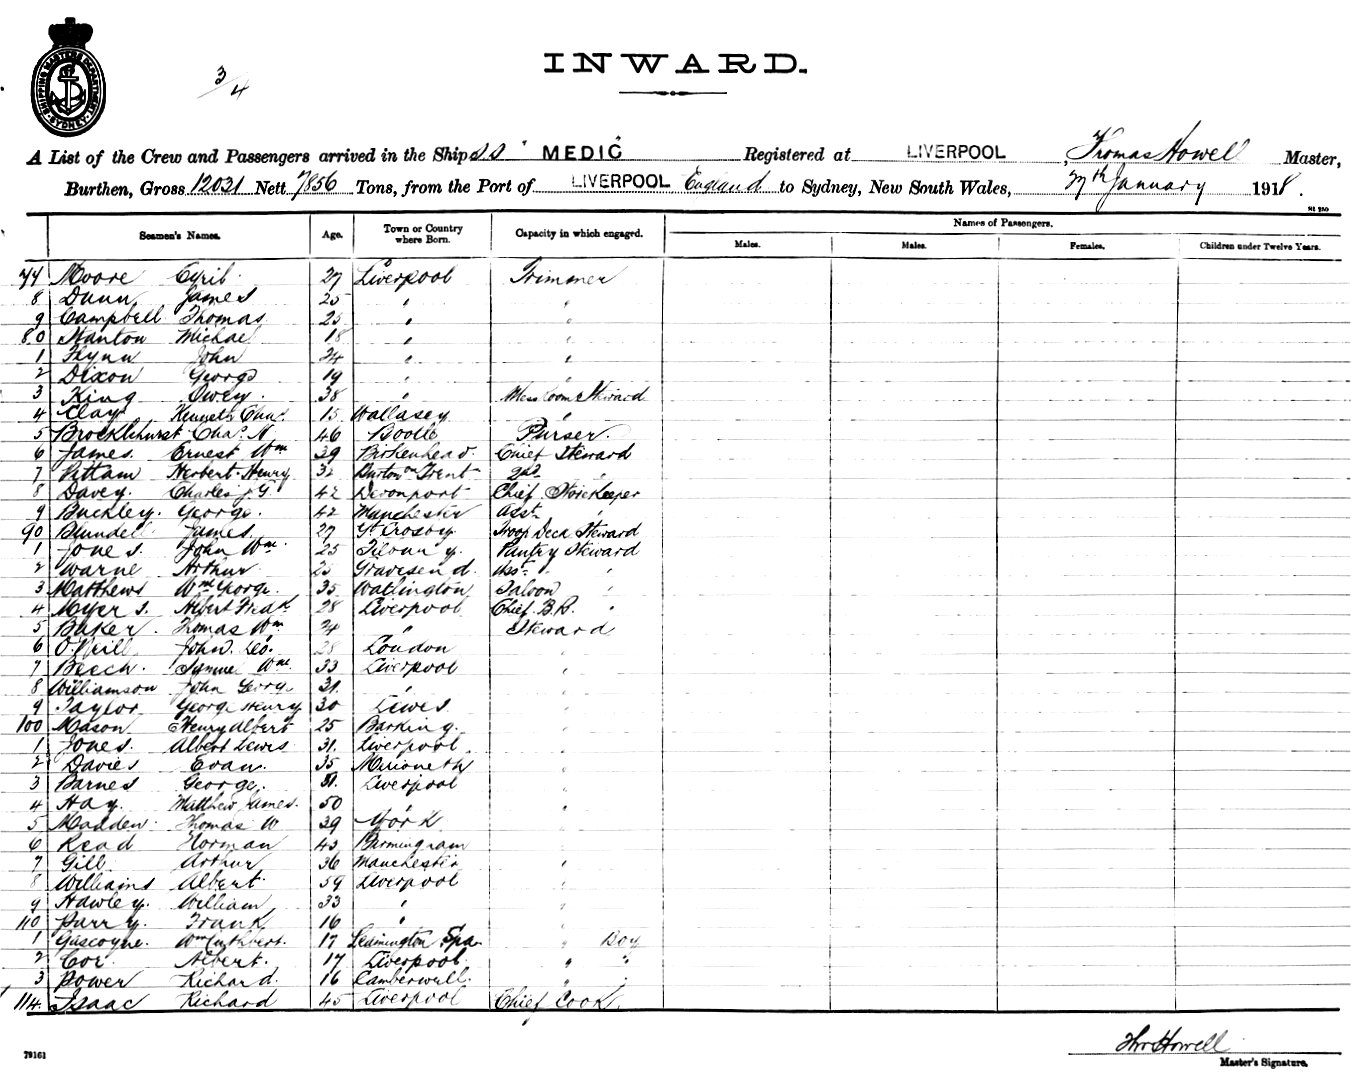 SHIPPING MASTERS DEPARTMENT
SYDNEY
3/4
INWARD.
A List of the Crew and Passengers arrived in the Ship SS "MEDIC" Registered at LIVERPOOL, Thomas Howell Master,
Burthen, Gross 12031 Nett 7856 Tons, from the Port of LIVERPOOL England to Sydney, New South Wales, 27th January 1918.
Seamen's Names. Age. Town or Country where Born. Capacity in which engaged. Names of Passengers.
Males. Males. Females. Children under Twelve Years.
77 Moore Cyril 27 Liverpool Trimmer
8 Dunn James 25 " "
9 Campbell Thomas 25 " "
80 Stanton Michael 18 " "
1 Flynn John 24 " "
2 Dixon George 19 " "
3 King Owen 38 " Mess Room Steward
4 Clay Kenneth Chas. 15 Wallasey "
5 Brocklehurst Chas. N 46 Bootle Purser.
6 James Ernest Wm 39 Birkenhead Chief Steward
7 Pittam Herbert Henry 32 Burton on Trent 2nd "
8 Davey. Charles J G. 42 Devonport Chief Storekeeper
9 Buckley. George. 42 Manchester Asst. "
90 Blundell James. 27 Gt Crosby Troop Deck Steward
1 Jones. John Wm. 25 Pantry Steward
2 Warne Arthur 25 Gravesend. Asst. "
3 Matthews Wm George. 35 Watlington Saloon "
4 Myers. Albert 28 Liverpool Chief. B.R. "
5 Baker. Thomas Wm 24 " Steward
6 O'Neill John. Leo. 28 London "
7 Beech. Samuel Wm. 33 Liverpool "
8 Williamson John George 31. " "
9 Taylor George Henry 30 Lewes "
100 Mason Henry Albert 25 Barking. "
1 Jones. Albert Lewis 31. Liverpool "
2 Davies Evan. 35 Merioneth "
3 Barnes George. 51. Liverpool "
4 Hay. Matthew James. 50 " "
5 Madden. Thomas W 39 York "
6 Read Norman 43 Birmingham "
7 Gill Arthur 36 Manchester "
8 Williams Albert 59 Liverpool "
9 Hawley. William 33 " "
110 Parry. Frank 16 " "
1 Gascoyne. Wm Cuthbert. 17 Leamington Spa " Boy
2 Cox. Albert. 17 Liverpool. " "
3 Power Richard. 16 Camberwell. " "
114. Isaac Richard 45 Liverpool Chief Cook
79161
Thos Howell
Master's Signature.